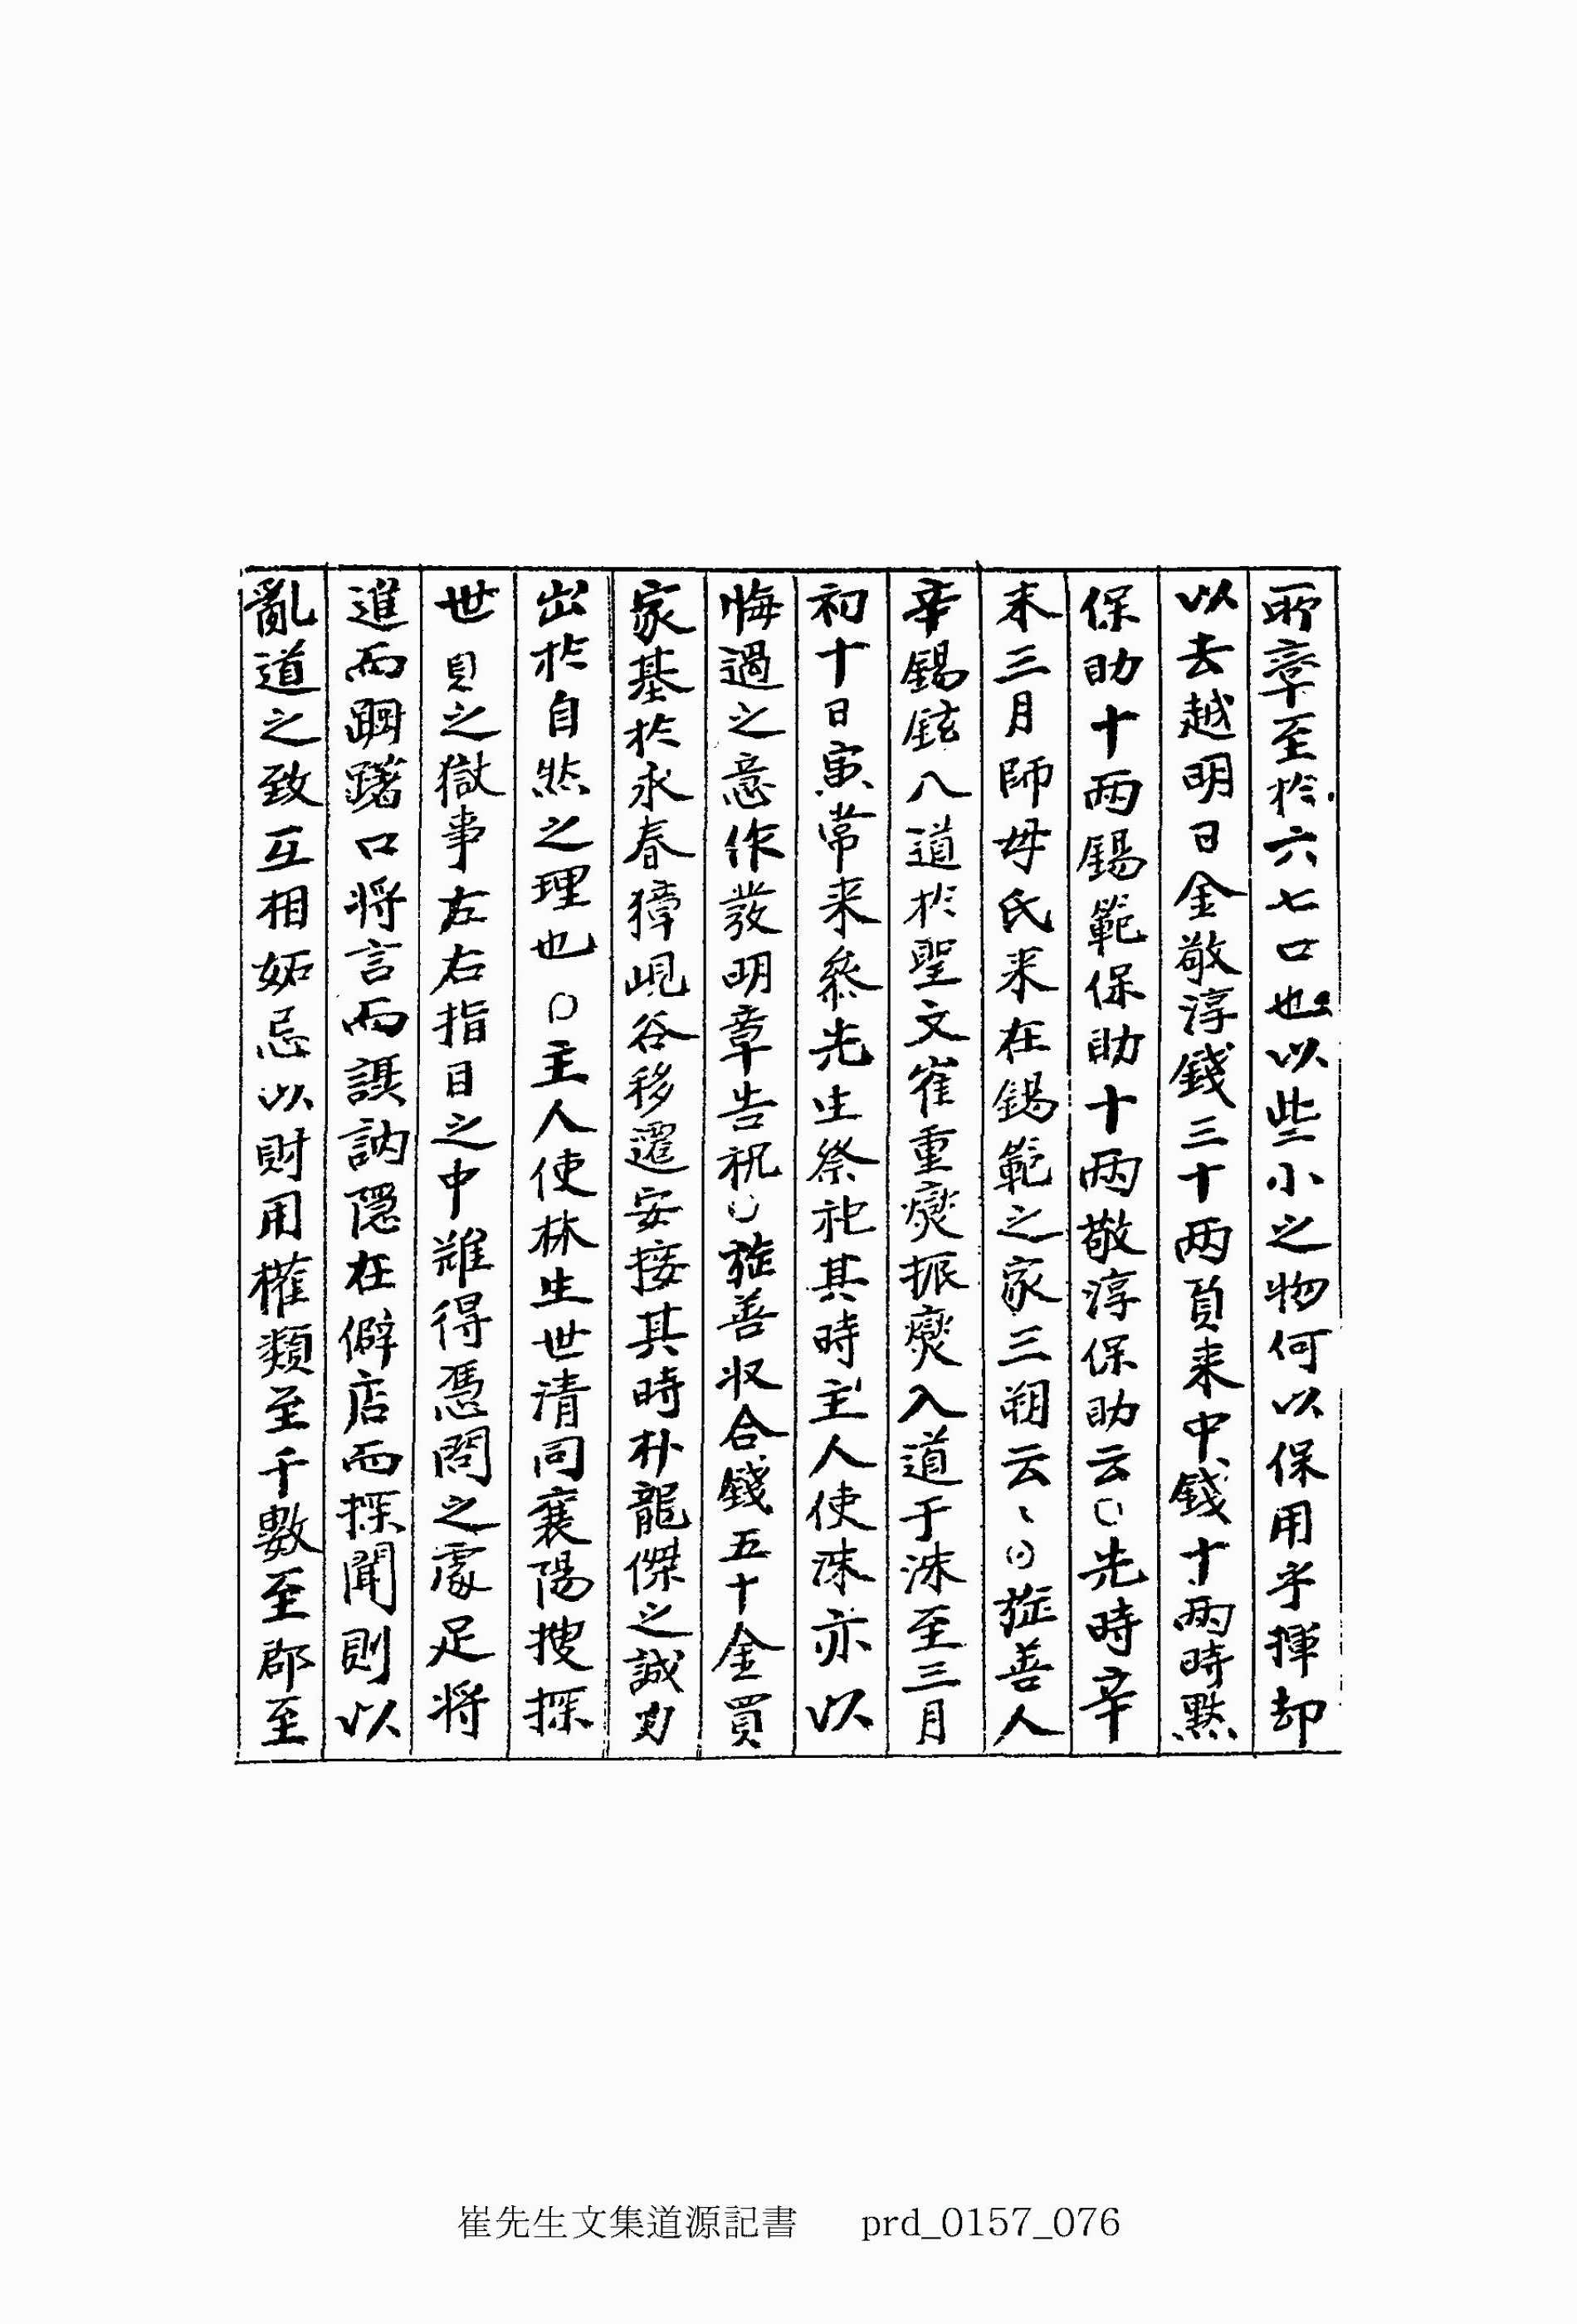 所牽至於六七口也以些小之物何以保用乎揮却
以去越明日金敬淳錢三十兩負来中錢十兩時點
保助十兩錫範保助十兩敬淳保助云○先時辛
未三月師母氏来在錫範之家三朔云〻○旌善人
辛錫鉉八道於聖文崔重燮振燮入道于洙至三月
初十日寅常来叅先生祭祀其時主人使洙亦以
悔過之意作發明章告祝○旌善收合錢五十金買
家基於永春獐峴谷移遷安接其時朴龍傑之誠力
出於自然之理也○主人使林生世清同襄陽搜探
世貞之獄事左右指目之中難得憑問之處足将
進而跙躇口将言而諆訥隱在僻店而探聞則以
亂道之致互相妬忌以財用權類至千數至郡至
崔先生文集道源記書 prd_0157_076